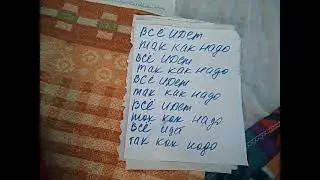 всё идет
так как надо
всё идет
так как надо
всё идет
так как надо
всё идет
так как надо
всё идет
так как надо